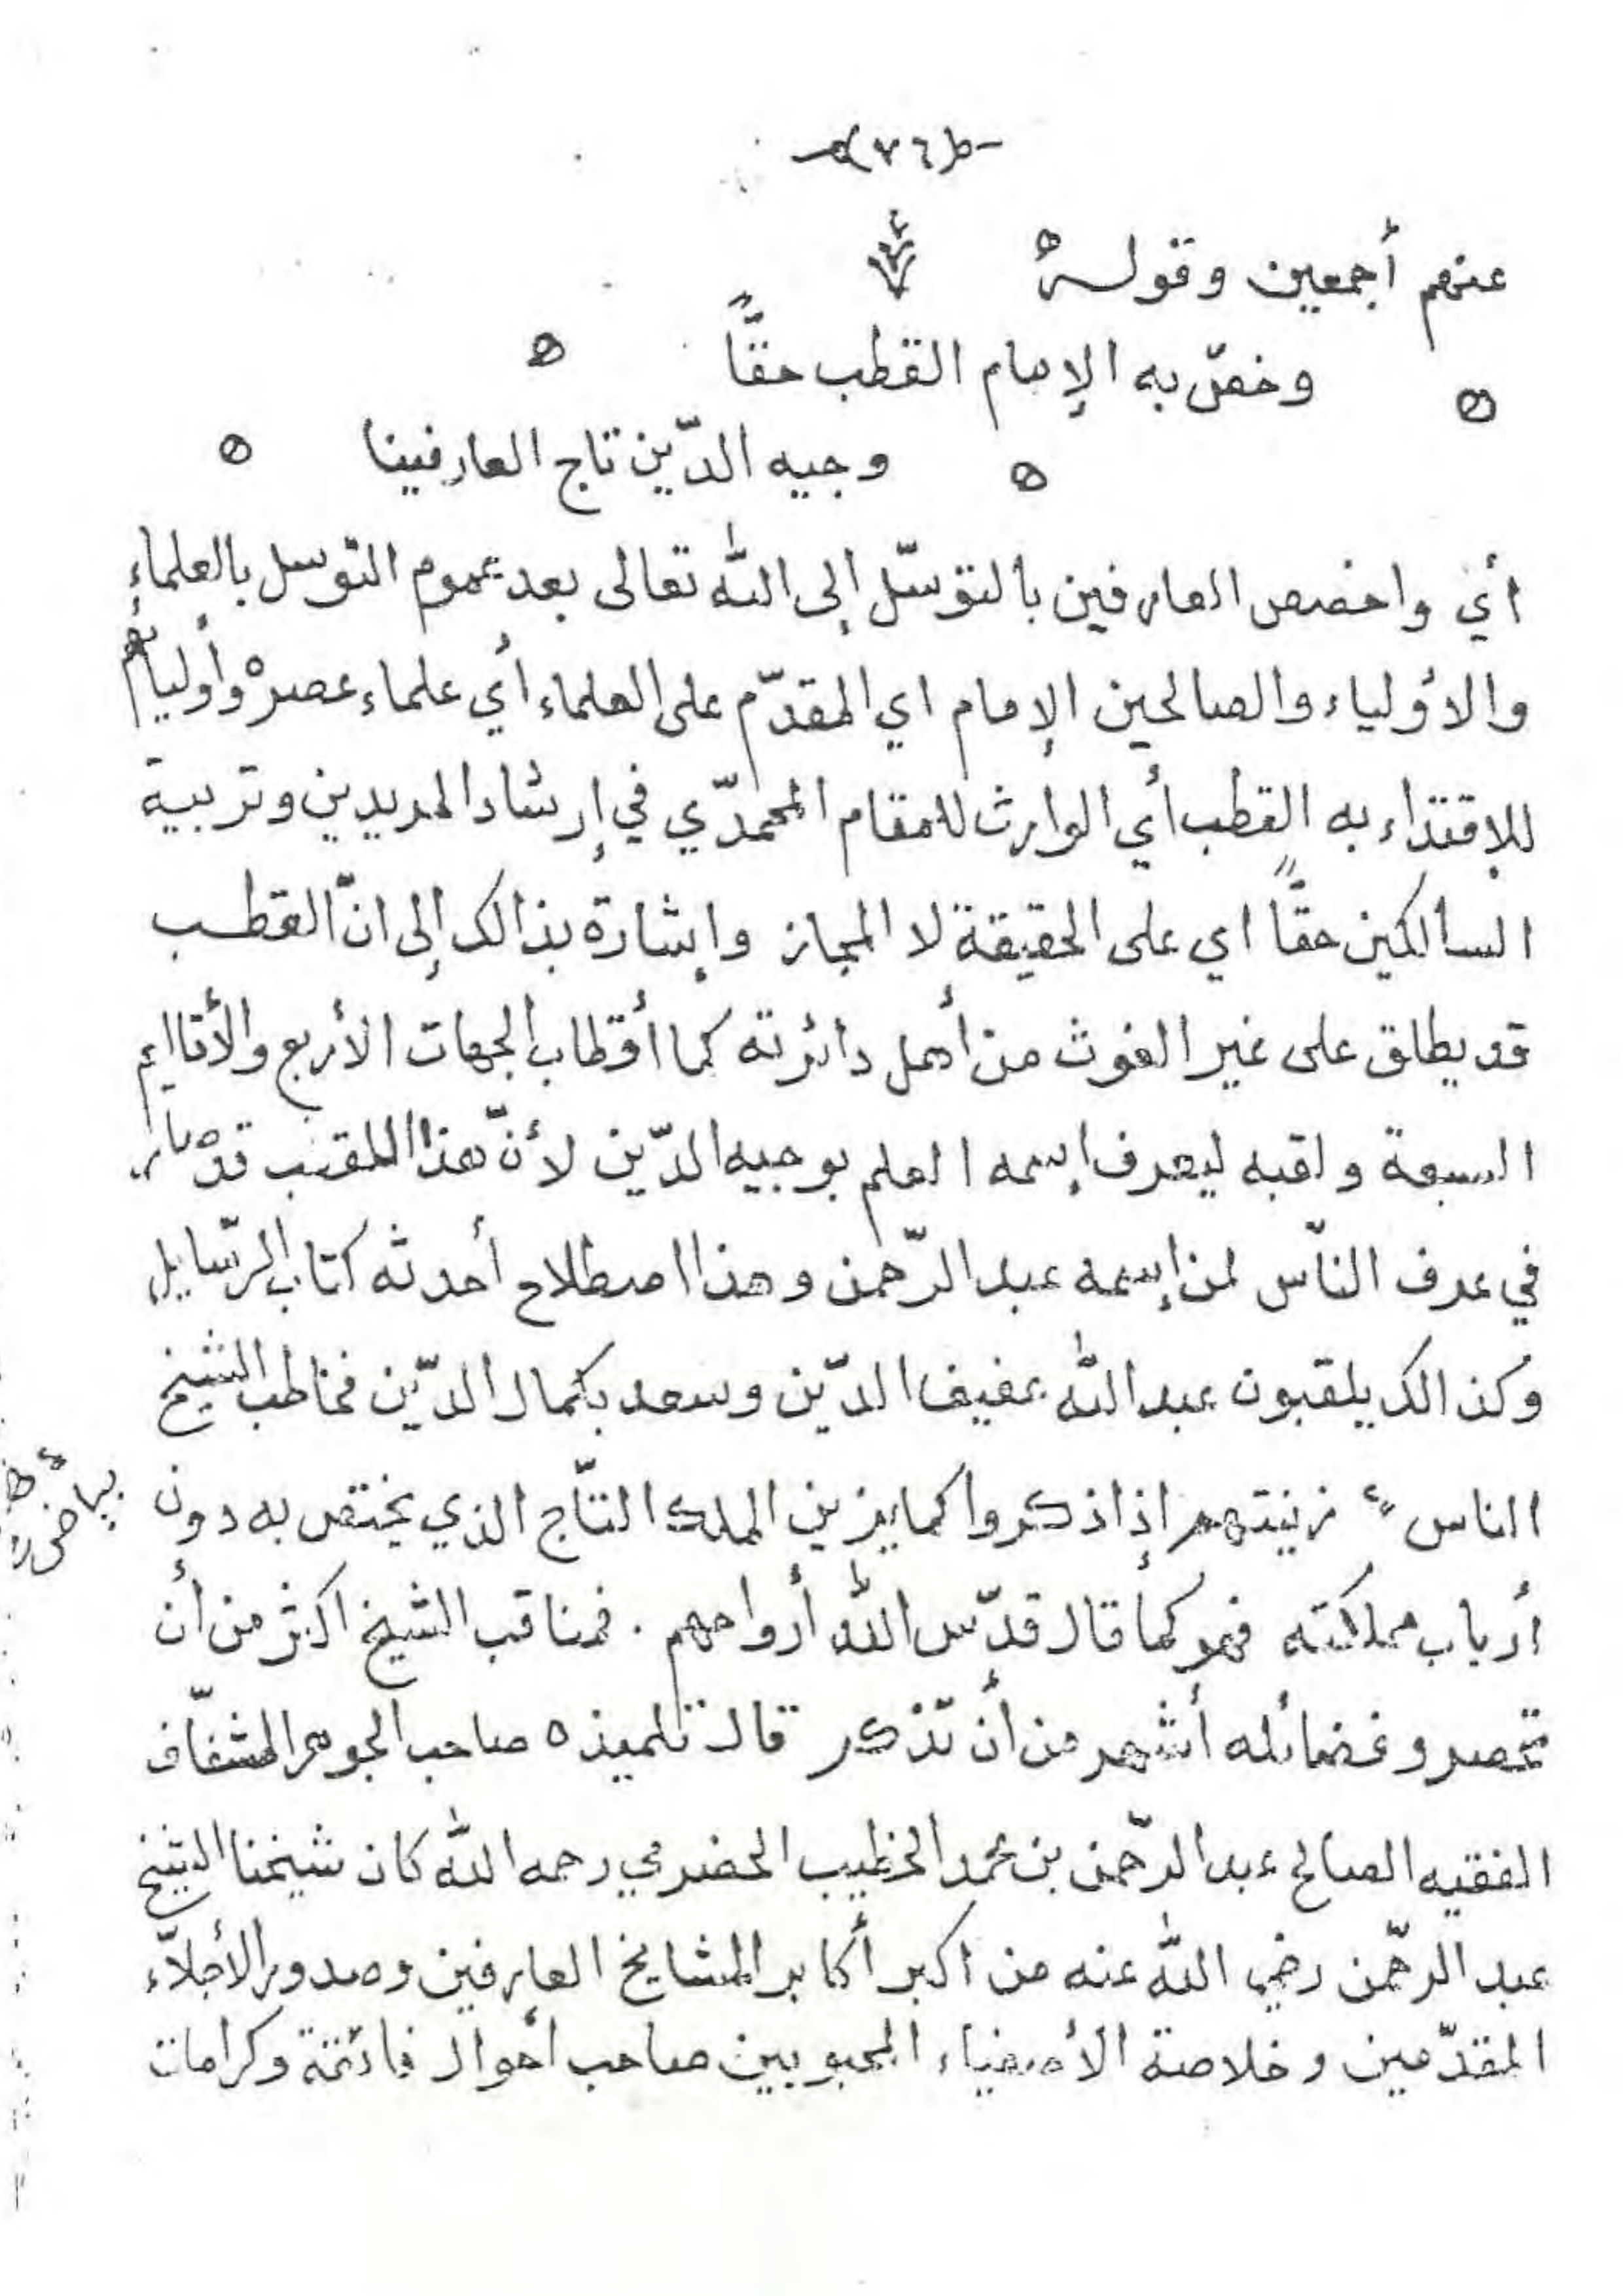 (٧٦)
عنهم أجمعين وقوله
وخصّ به الإمام القطب حقًّا
وجيه الدّين تاج العارفينا
أي واخصص العارفين بالتوسّل إلى الله تعالى بعد عموم التوسل بالعلماء
والأولياء والصالحين الإمام اي المقدّم على العلماء أي علماء عصره وأوليائه
للإقتداء به القطب أي الوارث للمقام المحمدّي في إرشاد المريدين وتربية
السالكين حقًّا اي على الحقيقة لا المجاز وإشارة بذالك إلى انّ القطب
قد يطلق على غير الغوث من أهل دائرته كما أقطاب الجهات الأربع والأقاليم
السبعة ولقبه ليعرف إسمه العلم بوجيه الدّين لأنّ هذا اللقب قد صار
في عرف النّاس لمن إسمه عبد الرّحمن وهذا اصطلاح أحدثه كتاب الرّسايل
وكذالك يلقبون عبد الله بعفيف الدّين وسعد بكمال الدّين فخاطب الشيخ
الناس زينتهم إذا ذكروا كما يزين الملك التّاج الذي يختص به دون
أرباب مملكته فهو كما قال قدّس الله أرواحهم . فمناقب الشيخ اكثر من أن
تحصر وفضائله أشهر من أن تذكر قال تلميذه صاحب الجوهر الشفّاف
الفقيه الصالح عبد الرّحمن بن محمد الخطيب الحضرمي رحمه الله كان شيخنا الشيخ
عبد الرحّمن رضي الله عنه من اكبر أكابر المشايخ العارفين وصدور الأجلاّء
المقدّمين وخلاصة الأصفياء المحبوبين صاحب أحوال فائقة وكرامات
بياض